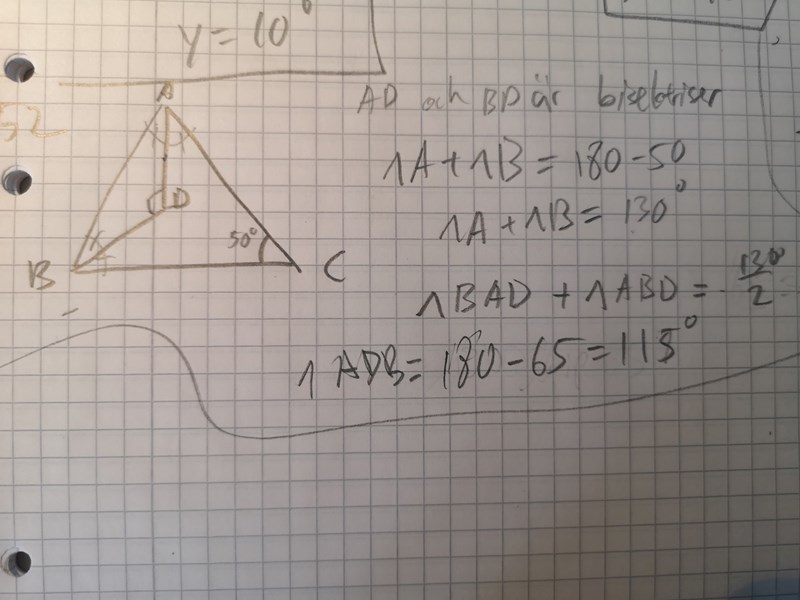 y = 10°
52
A
AD och BD är bisektriser
∧A + ∧B = 180 - 50
D
∧A + ∧B = 130°
50°
B
C
x
∧BAD + ∧ABD = 130°/2
∧ADB = 180 - 65 = 115°